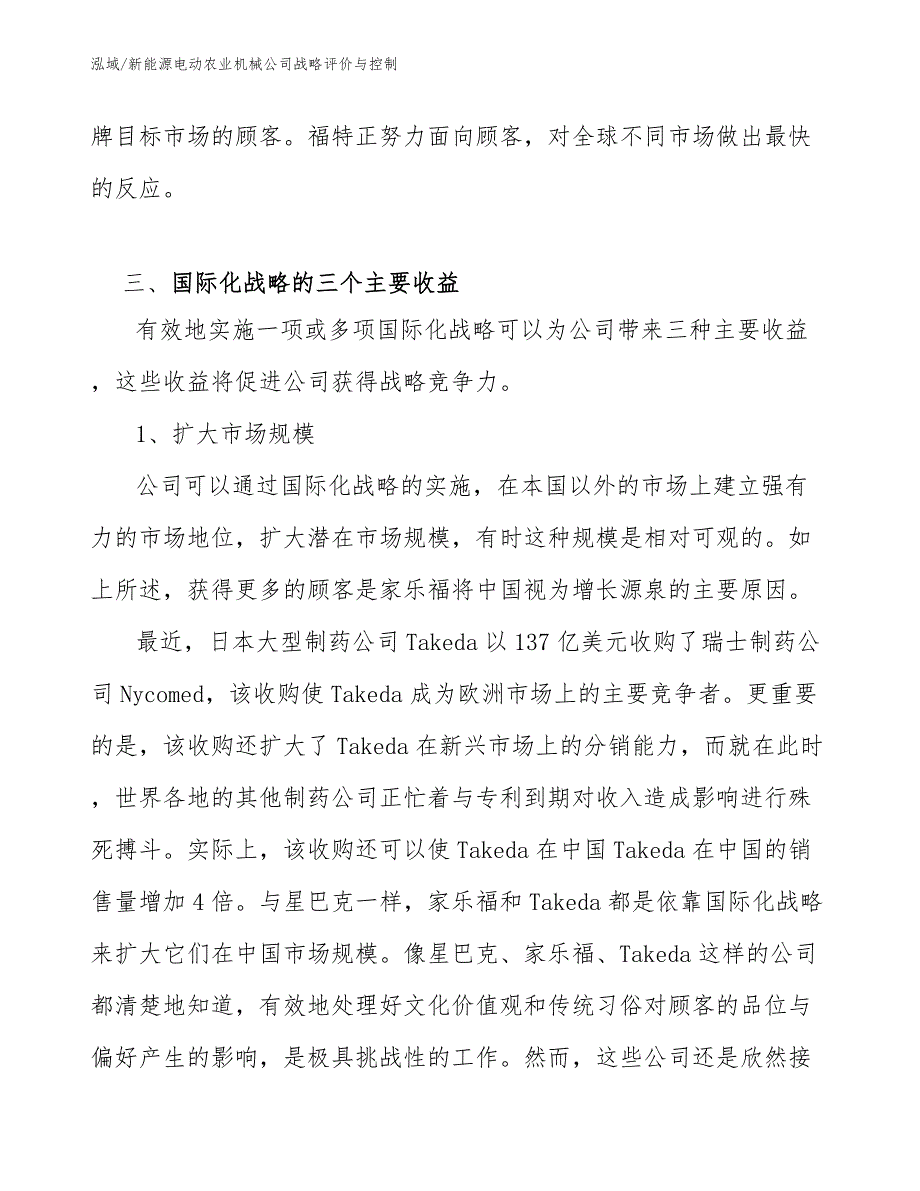 泓域/新能源电动农业机械公司战略评价与控制
牌目标市场的顾客。福特正努力面向顾客，对全球不同市场做出最快
的反应。
三、国际化战略的三个主要收益
有效地实施一项或多项国际化战略可以为公司带来三种主要收益
，这些收益将促进公司获得战略竞争力。
1、扩大市场规模
公司可以通过国际化战略的实施，在本国以外的市场上建立强有
力的市场地位，扩大潜在市场规模，有时这种规模是相对可观的。如
上所述，获得更多的顾客是家乐福将中国视为增长源泉的主要原因。
最近，日本大型制药公司 Takeda 以 137 亿美元收购了瑞士制药公
司 Nycomed，该收购使 Takeda 成为欧洲市场上的主要竞争者。更重要
的是，该收购还扩大了 Takeda 在新兴市场上的分销能力，而就在此时
，世界各地的其他制药公司正忙着与专利到期对收入造成影响进行殊
死搏斗。实际上，该收购还可以使 Takeda 在中国 Takeda 在中国的销
售量增加 4 倍。与星巴克一样，家乐福和 Takeda 都是依靠国际化战略
来扩大它们在中国市场规模。像星巴克、家乐福、Takeda 这样的公司
都清楚地知道，有效地处理好文化价值观和传统习俗对顾客的品位与
偏好产生的影响，是极具挑战性的工作。然而，这些公司还是欣然接